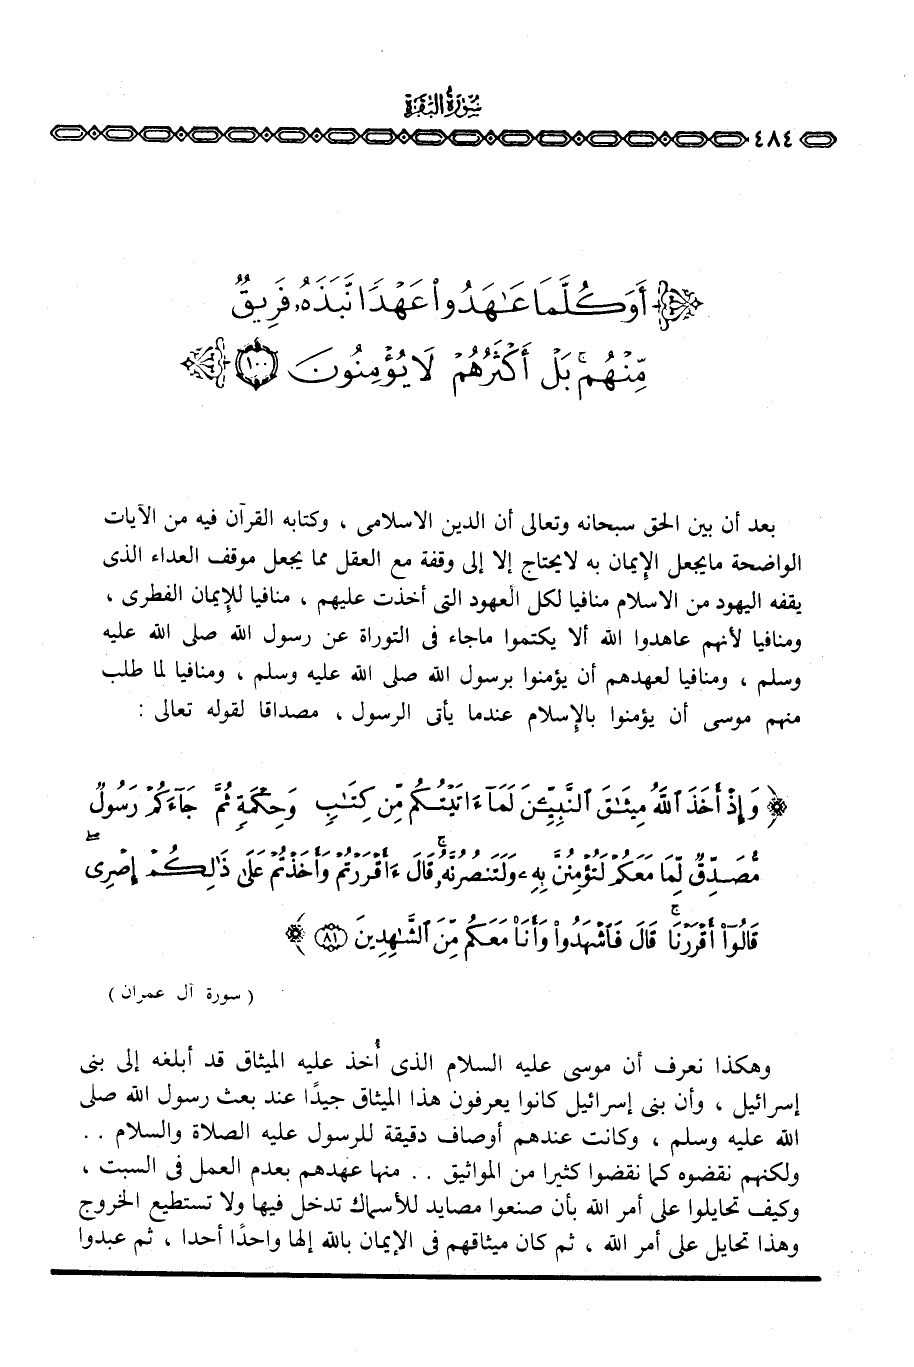 سورة البقرة
٤٨٤
﴿ أَوَكُلَّمَا عَٰهَدُوا۟ عَهْدًا نَّبَذَهُۥ فَرِيقٌ
مِّنْهُم ۚ بَلْ أَكْثَرُهُمْ لَا يُؤْمِنُونَ ١٠٠ ﴾
بعد أن بين الحق سبحانه وتعالى أن الدين الاسلامى ، وكتابه القرآن فيه من الآيات
الواضحة مايجعل الإيمان به لايحتاج إلا إلى وقفة مع العقل مما يجعل موقف العداء الذى
يقفه اليهود من الاسلام منافيا لكل العهود التى أخذت عليهم ، منافيا للإيمان الفطرى ،
ومنافيا لأنهم عاهدوا الله ألا يكتموا ماجاء فى التوراة عن رسول الله صلى الله عليه
وسلم ، ومنافيا لعهدهم أن يؤمنوا برسول الله صلى الله عليه وسلم ، ومنافيا لما طلب
منهم موسى أن يؤمنوا بالإسلام عندما يأتى الرسول ، مصداقا لقوله تعالى :
﴿ وَإِذْ أَخَذَ ٱللَّهُ مِيثَٰقَ ٱلنَّبِيِّۦنَ لَمَآ ءَاتَيْتُكُم مِّن كِتَٰبٍ وَحِكْمَةٍ ثُمَّ جَآءَكُمْ رَسُولٌ
مُّصَدِّقٌ لِّمَا مَعَكُمْ لَتُؤْمِنُنَّ بِهِۦ وَلَتَنصُرُنَّهُۥ ۚ قَالَ ءَأَقْرَرْتُمْ وَأَخَذْتُمْ عَلَىٰ ذَٰلِكُمْ إِصْرِى ۖ
قَالُوٓا۟ أَقْرَرْنَا ۚ قَالَ فَٱشْهَدُوا۟ وَأَنَا۠ مَعَكُم مِّنَ ٱلشَّٰهِدِينَ ٨١ ﴾
( سورة آل عمران )
وهكذا نعرف أن موسى عليه السلام الذى أُخذ عليه الميثاق قد أبلغه إلى بنى
إسرائيل ، وأن بنى إسرائيل كانوا يعرفون هذا الميثاق جيدًا عند بعث رسول الله صلى
الله عليه وسلم ، وكانت عندهم أوصاف دقيقة للرسول عليه الصلاة والسلام . .
ولكنهم نقضوه كما نقضوا كثيرا من المواثيق . . منها عهدهم بعدم العمل فى السبت ،
وكيف تحايلوا على أمر الله بأن صنعوا مصايد للأسماك تدخل فيها ولا تستطيع الخروج
وهذا تحايل على أمر الله ، ثم كان ميثاقهم فى الإيمان بالله إلها واحدًا أحدا ، ثم عبدوا